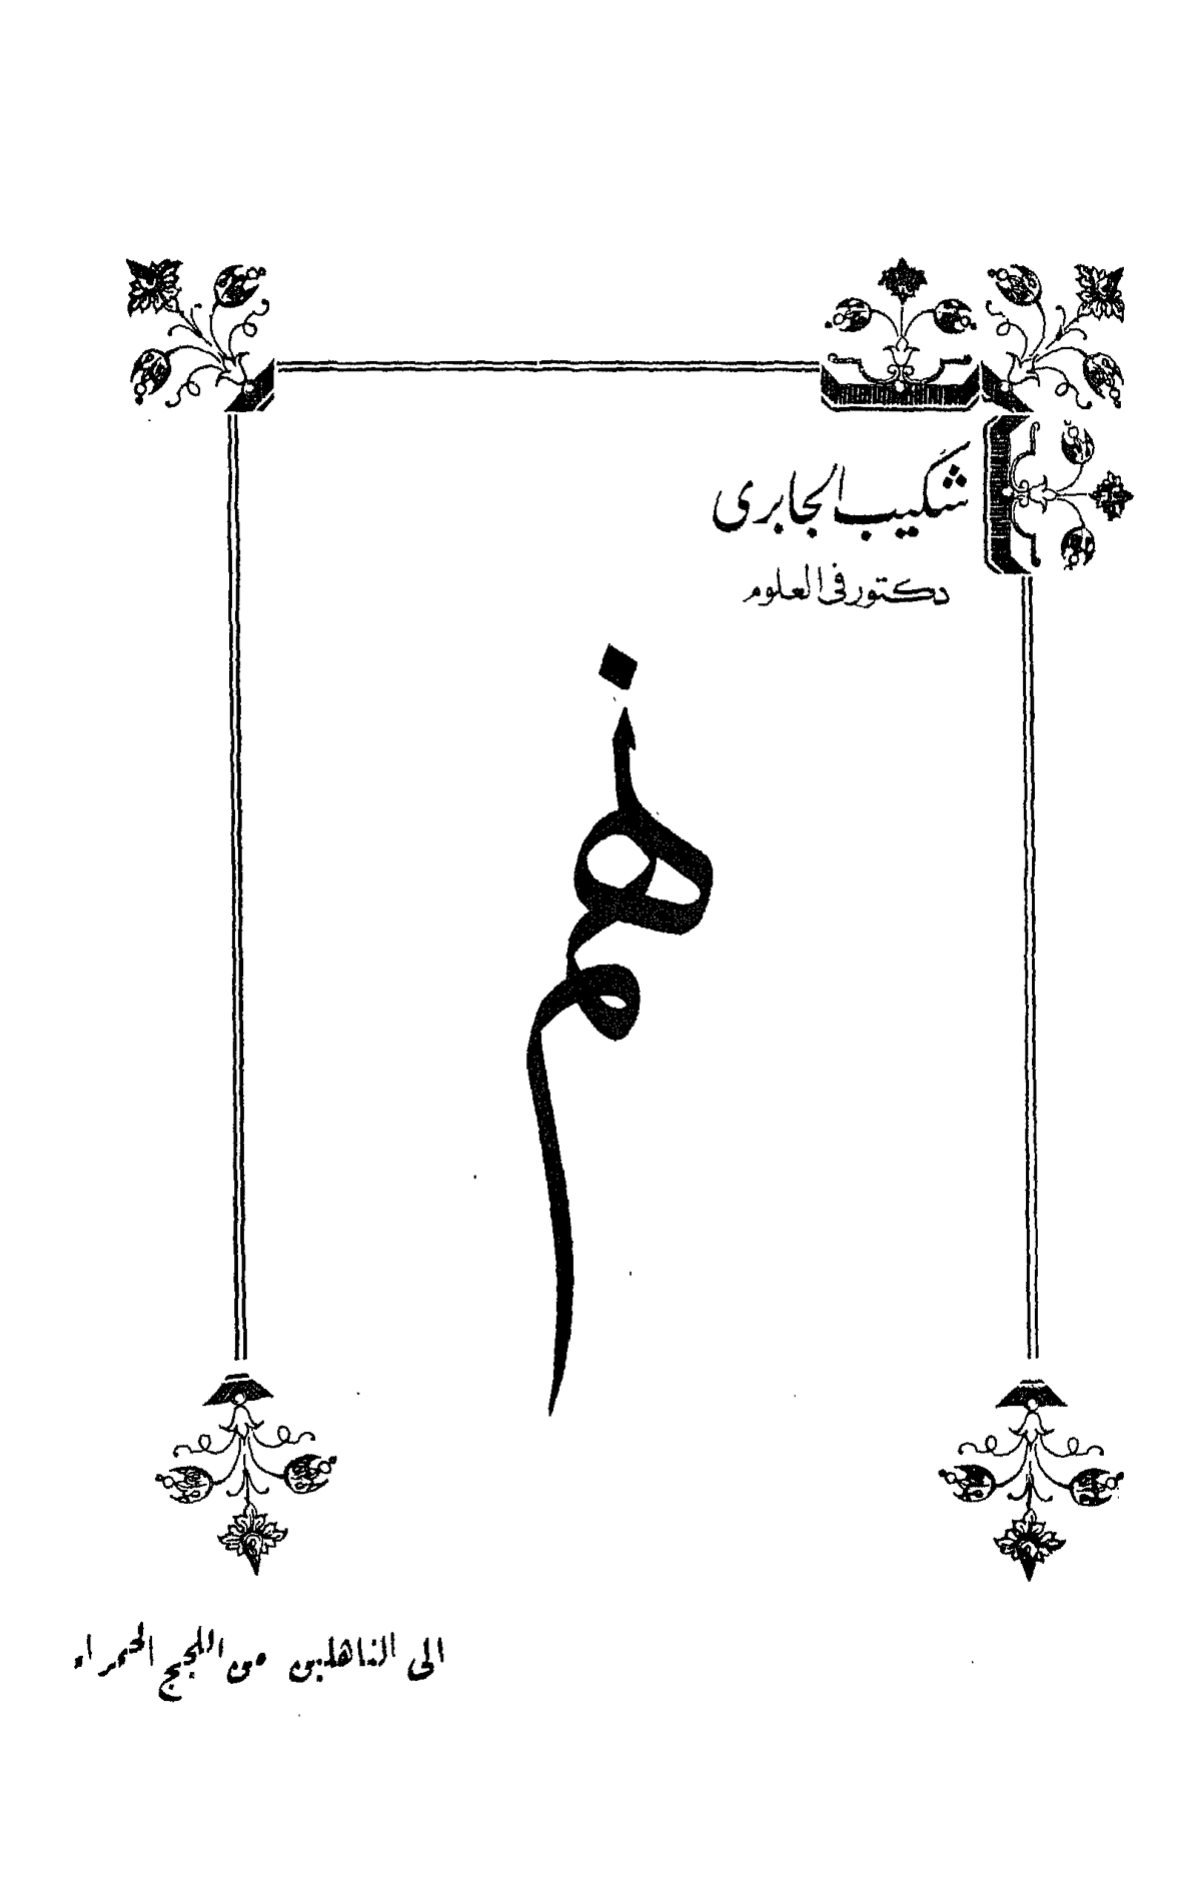 شكيب الجابرى
دكتور فى العلوم
نهم
الى الناهلين من اللجج الحمراء